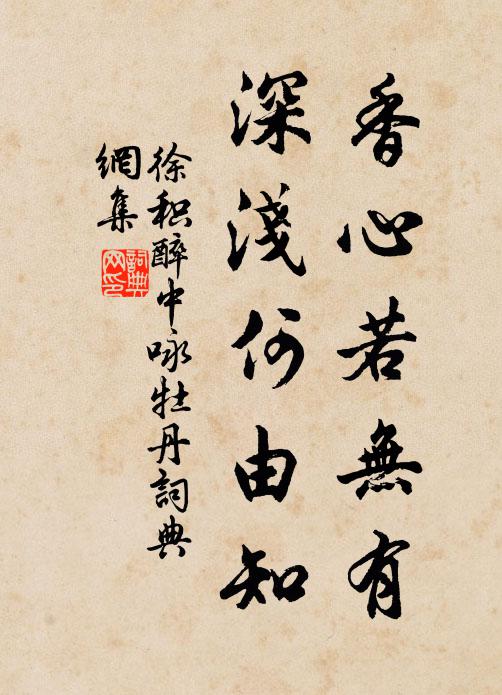 香心若無有
深淺何由知
徐积醉中咏牡丹詞典
網集
詞典
网印